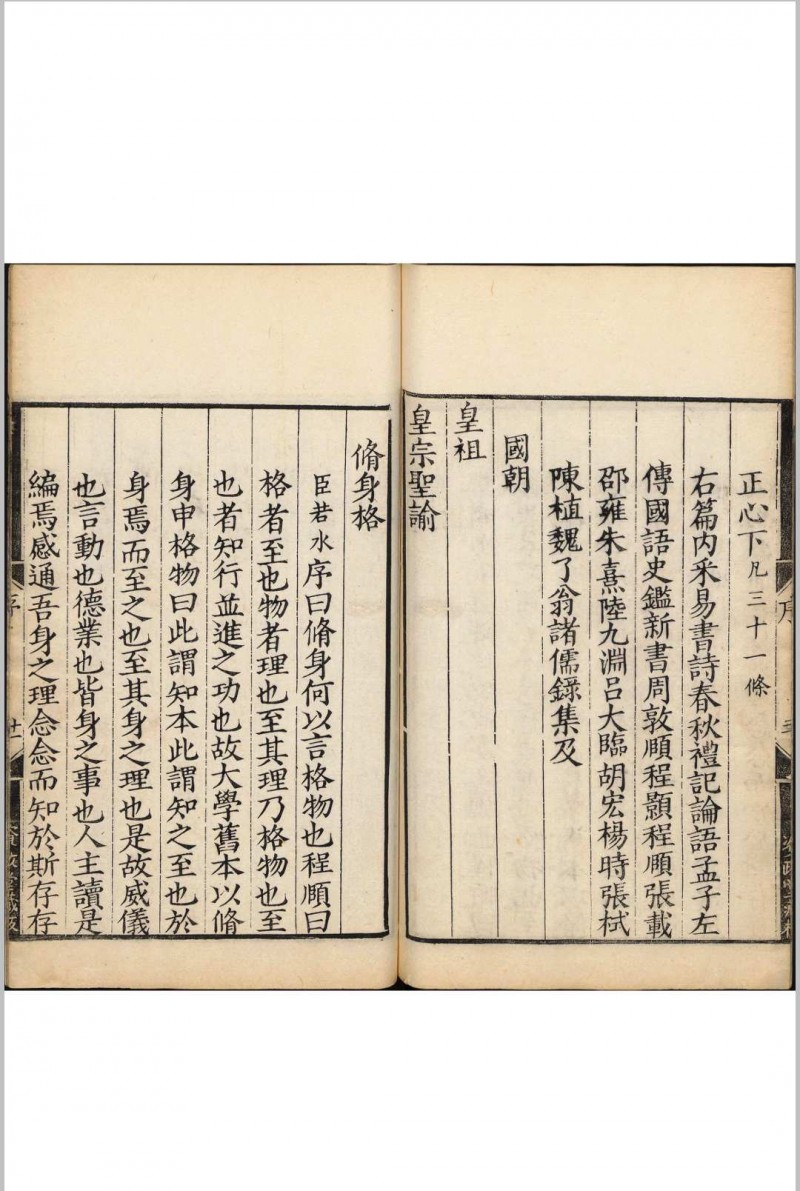 正心下凡三十一條
右篇内采易書詩春秋禮記論語孟子左
傳國語史鑑新書周敦頤程顥程頤張載
邵雍朱熹陸九淵呂大臨胡宏楊時張栻
陳植魏了翁諸儒錄集及
國朝
皇祖
皇宗聖諭
脩身格
臣若水序曰脩身何以言格物也程頤曰
格者至也物者理也至其理乃格物也至
也者知行並進之功也故大學舊本以脩
身申格物曰此謂知本此謂知之至也於
身焉而至之也至其身之理也是故威儀
也言動也德業也皆身之事也人主讀是
編焉感通吾身之理念念而知於斯存存
序
十一